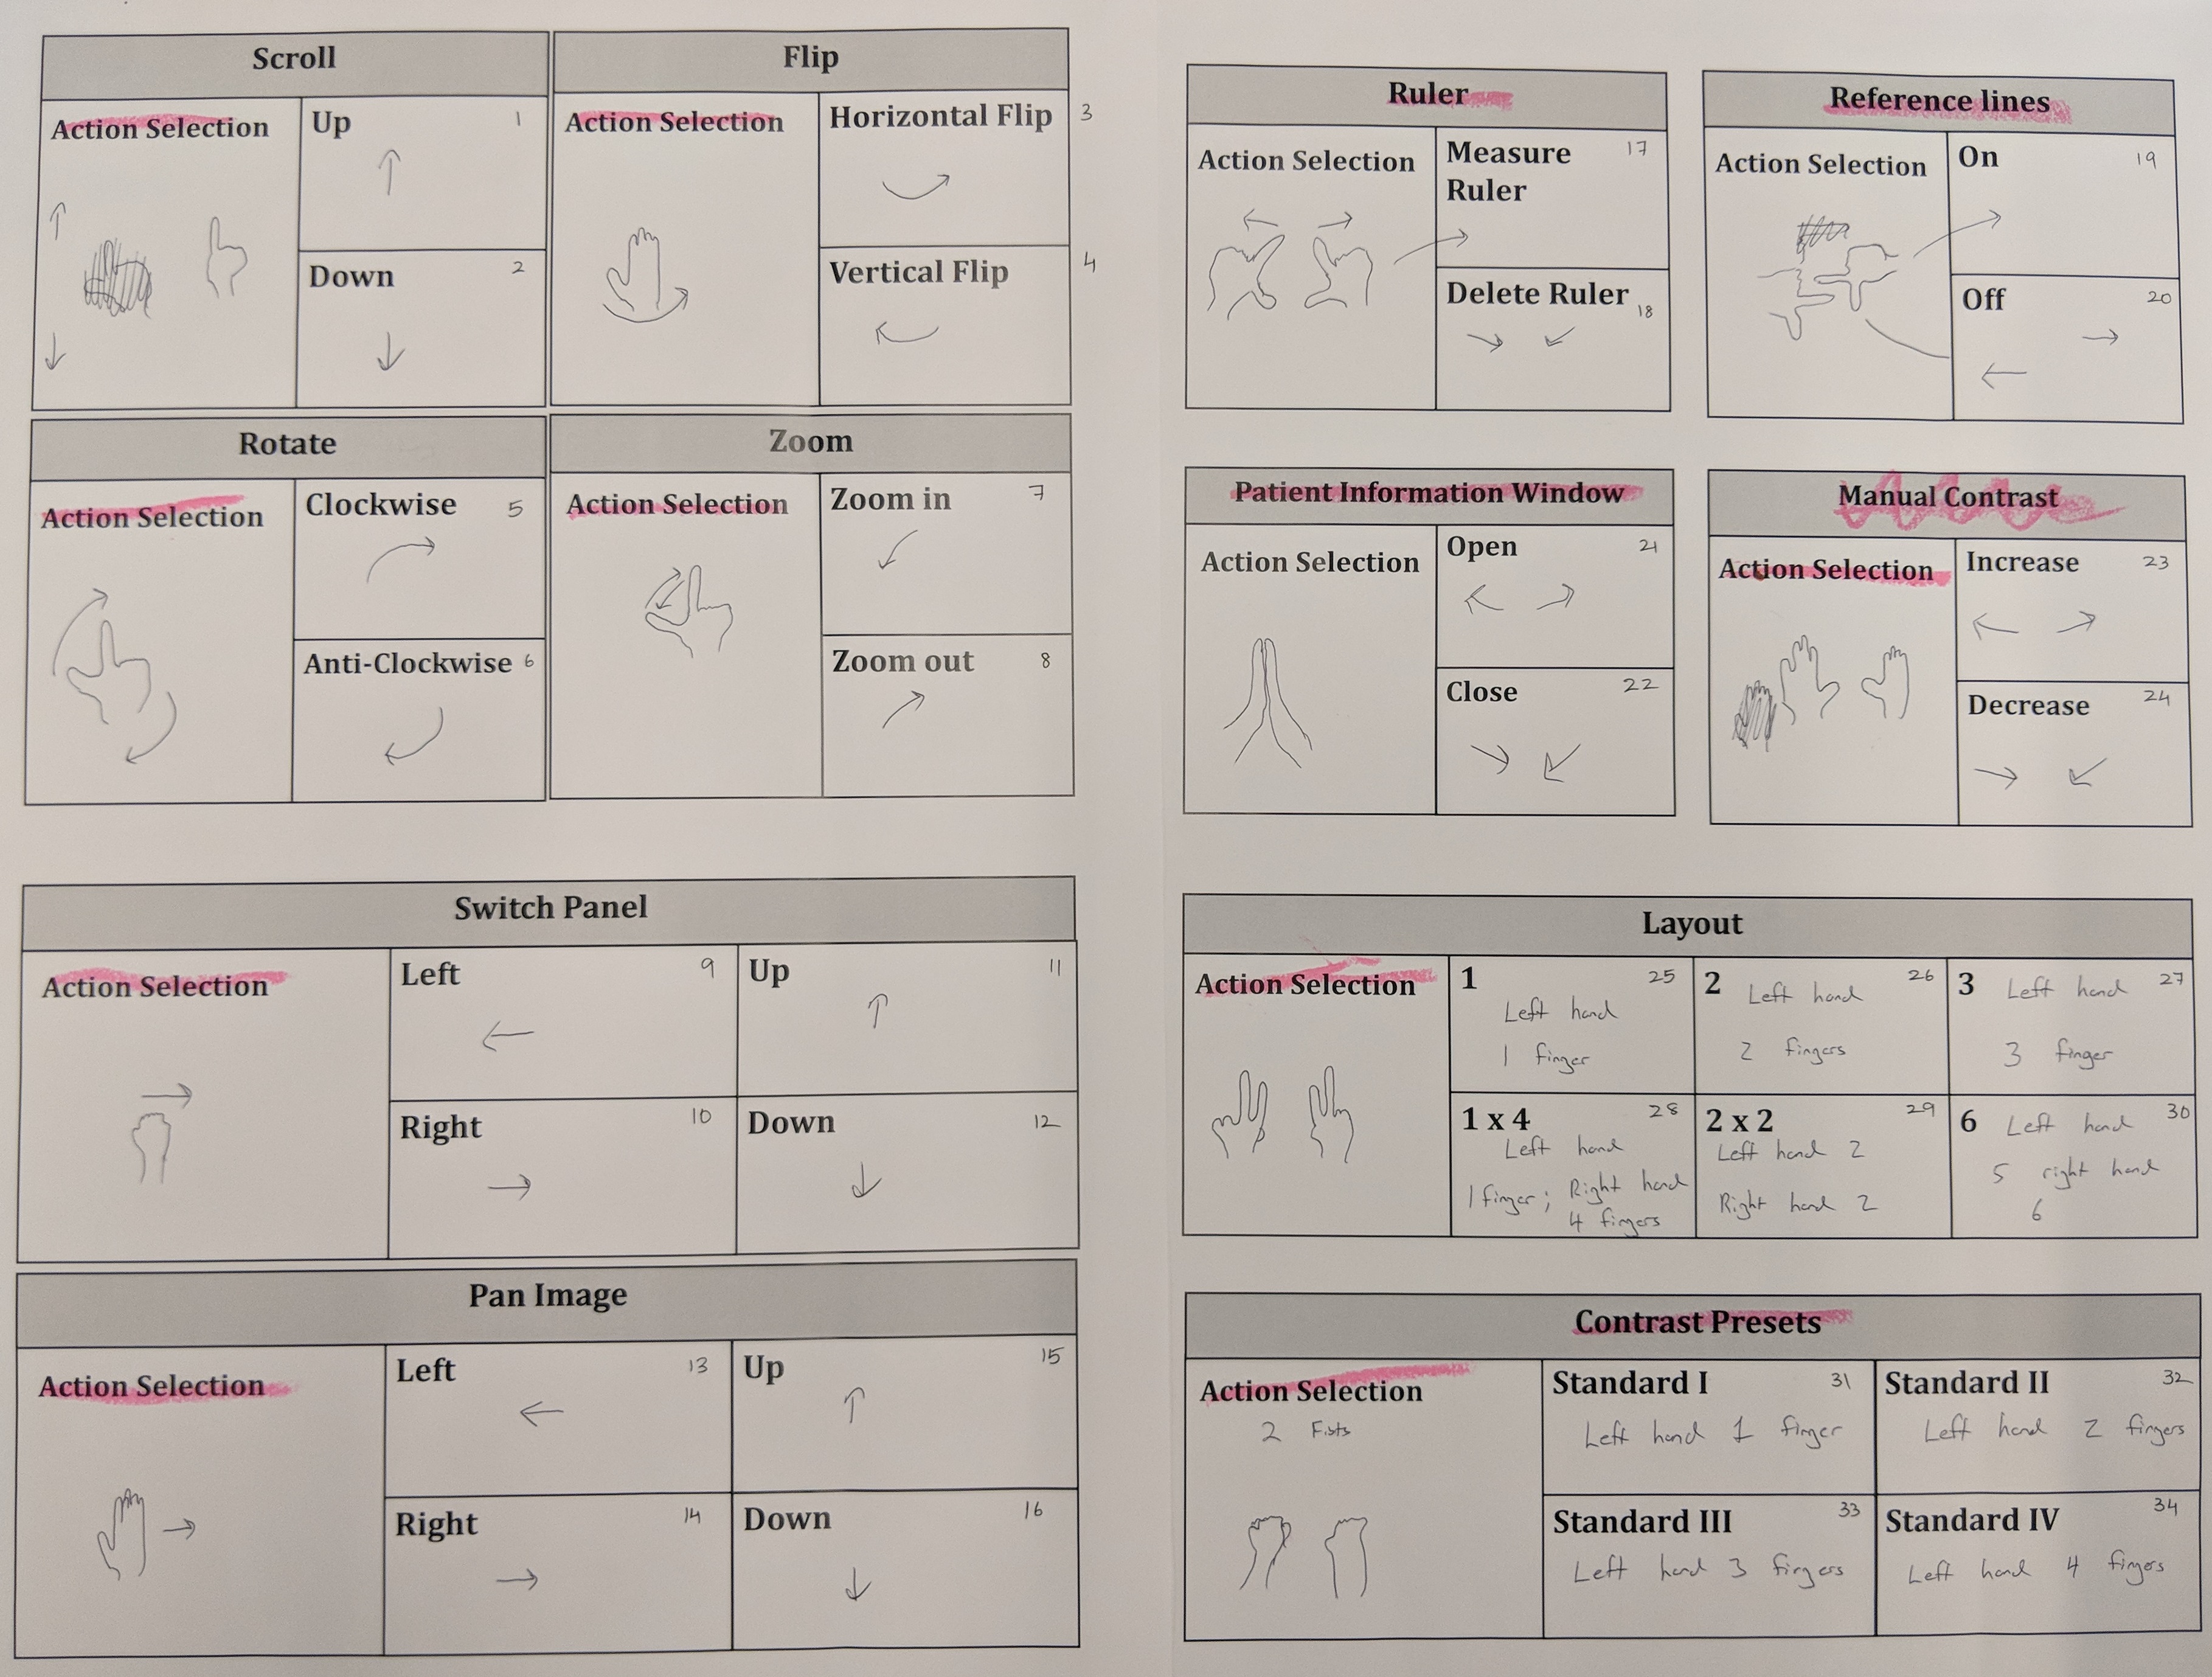 Scroll
Action Selection
Up 1
Down 2
Flip
Action Selection
Horizontal Flip 3
Vertical Flip 4
Rotate
Action Selection
Clockwise 5
Anti-Clockwise 6
Zoom
Action Selection
Zoom in 7
Zoom out 8
Switch Panel
Action Selection
Left 9
Up 11
Right 10
Down 12
Pan Image
Action Selection
Left 13
Up 15
Right 14
Down 16
Ruler
Action Selection
Measure 17
Ruler
Delete Ruler 18
Reference lines
Action Selection
On 19
Off 20
Patient Information Window
Action Selection
Open 21
Close 22
Manual Contrast
Action Selection
Increase 23
Decrease 24
Layout
Action Selection
1 25
Left hand
1 finger
2 Left hand 26
2 fingers
3 Left hand 27
3 finger
1 x 4 28
Left hand
1 finger; Right hand
4 fingers
2 x 2 29
Left hand 2
Right hand 2
6 Left hand 30
5 right hand
6
Contrast Presets
Action Selection
2 Fists
Standard I 31
Left hand 1 finger
Standard II 32
Left hand 2 fingers
Standard III 33
Left hand 3 fingers
Standard IV 34
Left hand 4 fingers